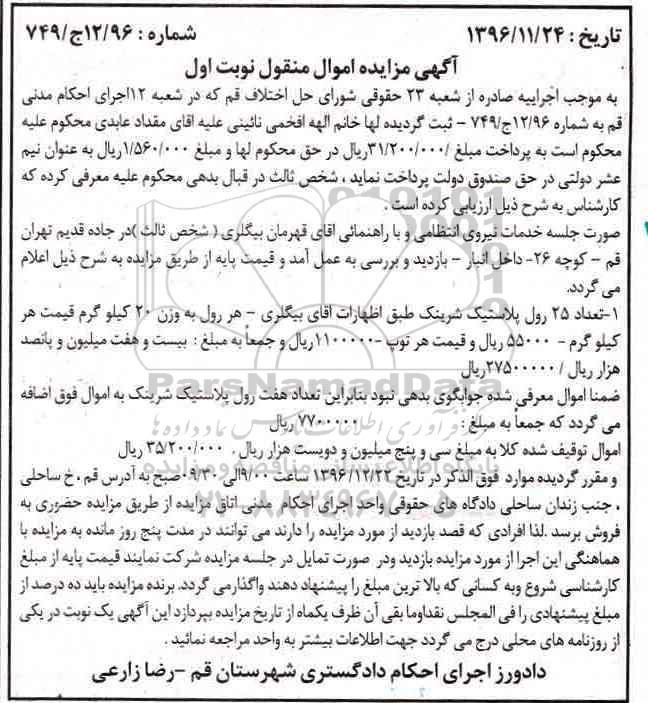 تاریخ : ۱۳۹۶/۱۱/۲۴ شماره : ۱۲/۹۶ج/۷۴۹
آگهی مزایده اموال منقول نوبت اول
به موجب اجراییه صادره از شعبه ۲۳ حقوقی شورای حل اختلاف قم که در شعبه ۱۲اجرای احکام مدنی
قم به شماره ۱۲/۹۶ج/۷۴۹ – ثبت گردیده لها خانم الهه افخمی نائینی علیه اقای مقداد عابدی محکوم علیه
محکوم است به پرداخت مبلغ /۳۱/۲۰۰/۰۰۰ریال در حق محکوم لها و مبلغ ۱/۵۶۰/۰۰۰ریال به عنوان نیم
عشر دولتی در حق صندوق دولت پرداخت نماید ، شخص ثالث در قبال بدهی محکوم علیه معرفی کرده که
کارشناس به شرح ذیل ارزیابی کرده است .
صورت جلسه خدمات نیروی انتظامی و با راهنمائی اقای قهرمان بیگلری ( شخص ثالث )در جاده قدیم تهران
قم – کوچه ۲۶- داخل انبار – بازدید و بررسی به عمل آمد و قیمت پایه از طریق مزایده به شرح ذیل اعلام
می گردد.
۱-تعداد ۲۵ رول پلاستیک شرینک طبق اظهارات اقای بیگلری – هر رول به وزن ۲۰ کیلو گرم قیمت هر
کیلو گرم – ۵۵۰۰۰ ریال و قیمت هر توپ -۱۱۰۰۰۰۰ریال و جمعاً به مبلغ : بیست و هفت میلیون و پانصد
هزار ریال /۲۷۵۰۰۰۰۰ریال
ضمنا اموال معرفی شده جوابگوی بدهی نبود بنابراین تعداد هفت رول پلاستیک شرینک به اموال فوق اضافه
می گردد که جمعاً به مبلغ : ۷۷۰۰۰۰۰ ریال
اموال توقیف شده کلا به مبلغ سی و پنج میلیون و دویست هزار ریال . ۳۵/۲۰۰/۰۰۰ ریال
و مقرر گردیده موارد فوق الذکر در تاریخ ۱۳۹۶/۱۲/۲۲ ساعت ۹/۰۰الی ۹/۳۰صبح به آدرس قم ، خ ساحلی
، جنب زندان ساحلی دادگاه های حقوقی واحد اجرای احکام مدنی اتاق مزایده از طریق مزایده حضوری به
فروش برسد .لذا افرادی که قصد بازدید از مورد مزایده را دارند می توانند در مدت پنج روز مانده به مزایده با
هماهنگی این اجرا از مورد مزایده بازدید ودر صورت تمایل در جلسه مزایده شرکت نمایند قیمت پایه از مبلغ
کارشناسی شروع وبه کسانی که بالا ترین مبلغ را پیشنهاد دهند واگذارمی گردد. برنده مزایده باید ده درصد از
مبلغ پیشنهادی را فی المجلس نقداوما بقی آن ظرف یکماه از تاریخ مزایده بپردازد این آگهی یک نوبت در یکی
از روزنامه های محلی درج می گردد جهت اطلاعات بیشتر به واحد مراجعه نمائید .
دادورز اجرای احکام دادگستری شهرستان قم –رضا زارعی
ParsNamadData